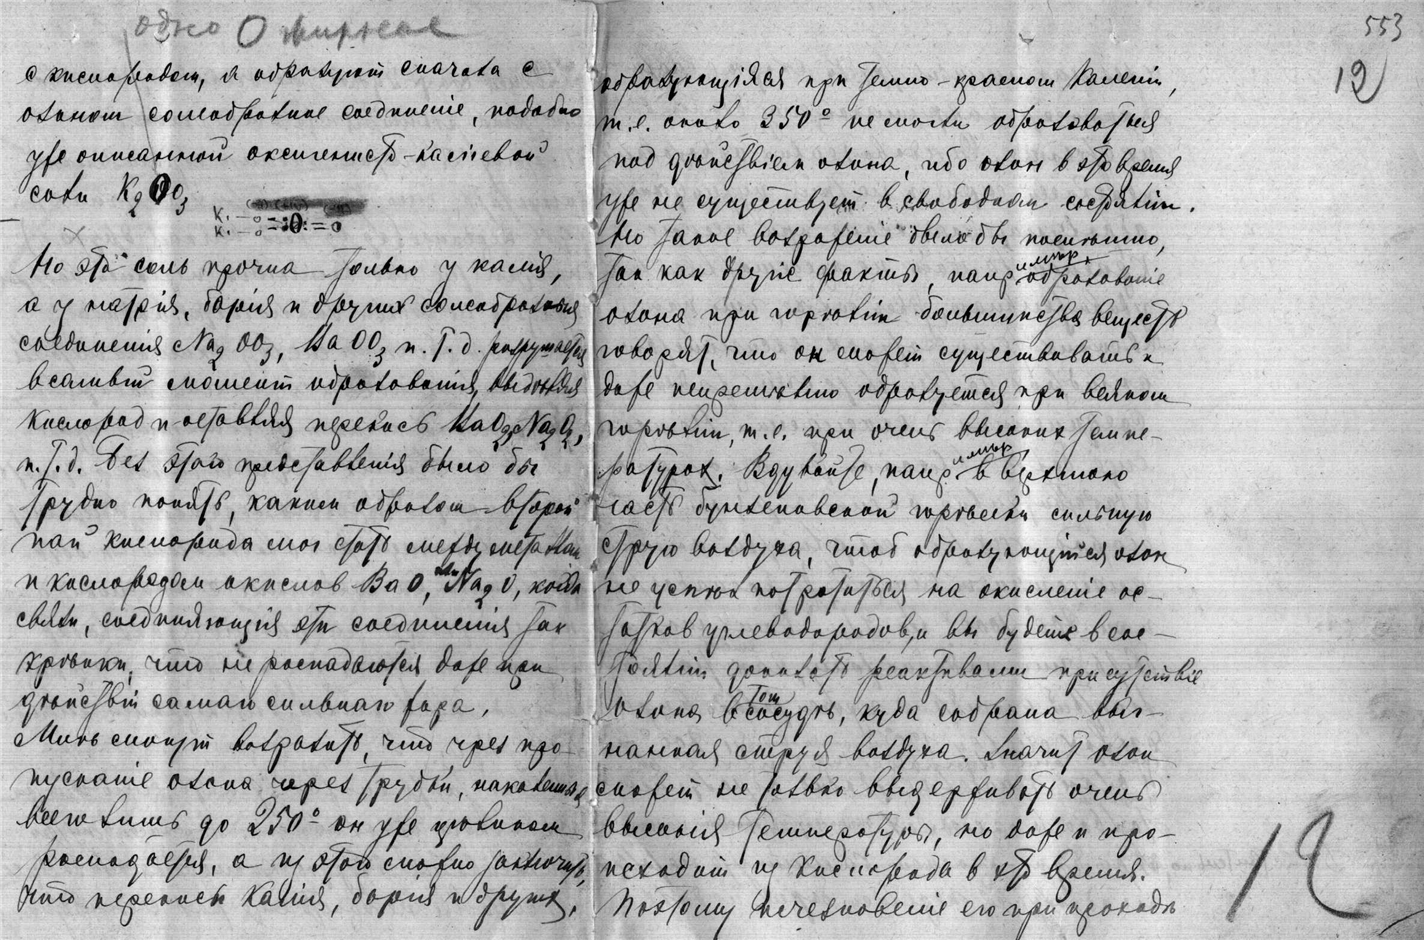 одно О жирное
с кислородом, а образуют сначала с
озоном солеобразное соединенiе, подобно
уже описанной оксигенисто-калiевой
соли K2OO3
K. — o
K. — o = :O: = o
Но эта соль прочна только у калiя,
а у натрiя, барiя и других солеобразныя
соединенiя Na2OO3, BaOO3 и.т.д. разрушаются
в самый момент образованiя, выделяя
кислород и оставляя перекись BaO2, Na2O2,
и.т.д. Без этого представленiя было бы
трудно понять, каким образом второй
пай кислорода мог стать между металлом
и кислородом окислов BaO, или Na2O, когда
связи, соединяющiя эти соединенiя так
крѣпки, что не распадаются даже при
дѣйствiи самаго сильнаго жара.
Мнѣ могут возразить, что чрез про-
пусканiе озона через трубки, накаленныя
всего лишь до 250° он уже цѣликом
распадается, а из этого можно заключить,
что перекиси калiя, барiя и других,
553
12
образующiяся при темно-красном каленiи,
т.е. около 350° не могли образоваться
под дѣйствiем озона, ибо озон в это время
уже не существует в свободном состоянiи.
Но такое возраженiе было бы поспѣшно,
так как другiе факты, например образованiе
озона при горѣнiи большинства веществ
говорят, что он может существовать и
даже непремѣнно образуется при всяком
горѣнiи, т.е. при очень высоких темпе-
ратурах. Вдувайте, например в верхнюю
часть бунзеновской горѣлки сильную
струю воздуха, чтоб образующiйся озон
не успѣл потратиться на окисленiе ос-
татков углеводородов, и вы будете в сос-
тоянiи доказать реактивами присутствiе
озона в том сосудѣ, куда собрана выг-
нанная струя воздуха. Значит озон
может не только выдерживать очень
высокiя температуры, но даже и про-
исходит из кислорода в это время.
Поэтому исчезновенiе его при проходѣ
12